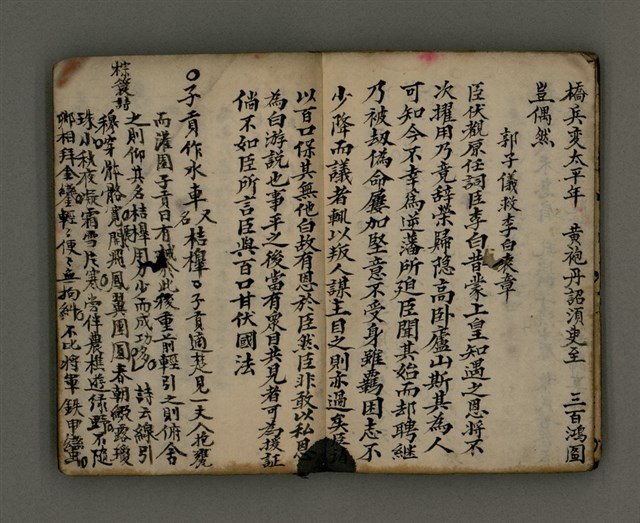 橋兵変太平年 黄袍丹詔須臾至 三百鴻圖
豈偶然
郭子儀救李白表章
臣伏覩原任詞臣李白昔蒙上皇知遇之恩將不
次擢用乃竟辞榮歸隐高卧廬山斯其為人
可知今不幸為逆藩所廹臣聞其始而却聘継
乃被刼偽命屢加堅意不受身雖羈困志不
少降而議者輒以叛人謀主目之則亦過矣臣請
以百口保其無他白故有恩於臣然臣非敢以私恩
為白游説也事平之後當有衆目共見者可為援証
倘不如臣所言臣與百口甘伏國法
子貢作水車 又名 桔橰 子貢適楚見一丈人抱甕
而灌園子貢曰有械於此後重前輕引之則俯舍
之則仰其名桔橰用力少而成功多 詩云線引
棕簑詩
穆穿骱骼寛闊飛鳳翼圍圓春朝綴露瓊
珠小秋夜凝霜雪片寒尝伴農樵遊綠野不隨
卿相拜金鑾輕便無拘絆不比將軍鉄甲